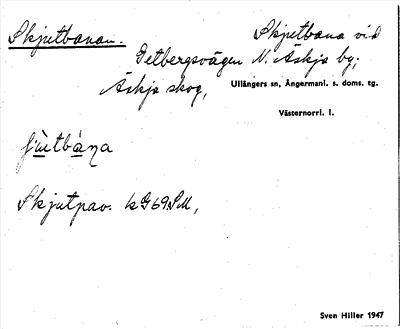 Skjutbanan. Skjutbana vid
Getbergsvägen N. Äskja by,
Äskja skog, Ullångers sn, Ångermanl. s. doms. tg.
Västernorrl. l.
Skjutpav. k G69SM,
Sven Hiller 1947